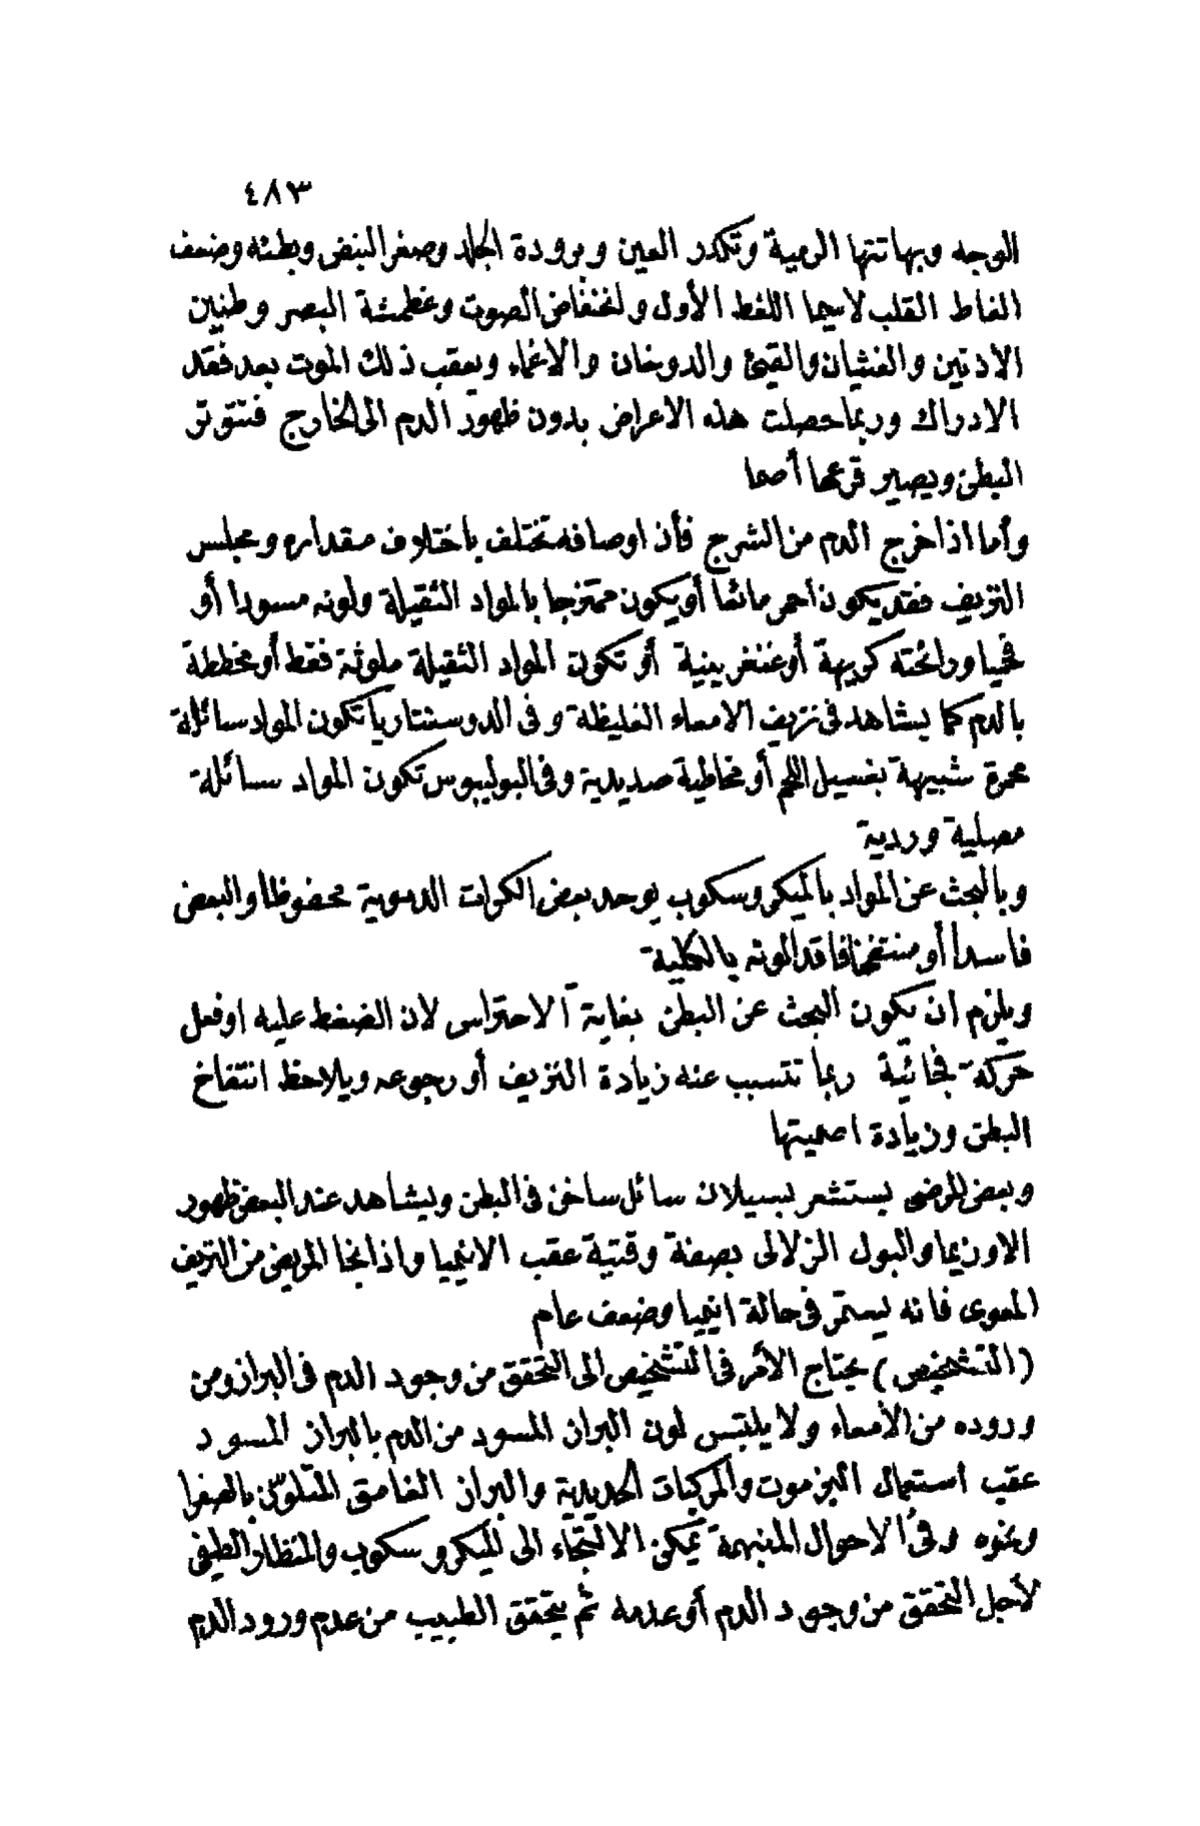 ٤٨٣
الوجه وبهاتتها الرمية وتكدر العين وبرودة الجلد وصغر النبض وبطئه وضعف
الغاط القلب لاسيما اللغط الأول وانخفاض الصوت وغطمشة البصر وطنين
الاذنين والغثيان والقيئ والدوخان والاغماء ويعقب ذلك الموت بعد فقد
الادراك وربما حصلت هذه الاعراض بدون ظهور الدم الى الخارج فتتوتر
البطن ويصير قرعها أصما
وأما اذا خرج الدم من الشرج فأن اوصافه تختلف باختلاف مقداره ومجلس
النزيف فقد يكون احمر مائعا أو يكون ممتزجا بالمواد الثقيلة ولونه مسودا أو
فحميا ورائحته كريهة أو غنغرينية أو تكون المواد الثقيلة ملوثة فقط أو مخططة
بالدم كما يشاهد في نزيف الامعاء الغليظة وفي الدوسنتاريا تكون المواد سائلة
محمرة شبيهة بغسيل اللحم أو مخاطية صديدية وفي البوليبوس تكون المواد سائلة
مصلية وردية
وبالبحث عن المواد بالميكروسكوب يوجد بعض الكرات الدموية محفوظا والبعض
فاسدا أو منتفخا فاقدا لونه بالكلية
ويلزم ان يكون البحث عن البطن بغاية الاحتراس لان الضغط عليه او فعل
حركة فجائية ربما تتسبب عنه زيادة النزيف أو رجوعه ويلاحظ انتفاخ
البطن وزيادة اصميتها
وبعض المرضى يستشعر بسيلان سائل ساخن في البطن ويشاهد عند البعض ظهور
الاوزيما والبول الزلالى بصفة وقتية عقب الانيميا واذا نجا المريض من النزيف
المعوى فانه يستمر في حالة انيميا وضعف عام
(التشخيص) يحتاج الأمر في التشخيص الى التحقق من وجود الدم في البراز ومن
وروده من الأمعاء ولا يلتبس لون البراز المسود من الدم بالبراز المسود
عقب استعمال البزموت والمركبات الحديدية والبراز الغامق المتلون بالصفرا
ونحوه وفي الاحوال المنبهمة يمكن الالتجاء الى الميكروسكوب والمنظار الطيفى
لأجل التحقق من وجود الدم أو عدمه ثم يتحقق الطبيب من عدم ورود الدم